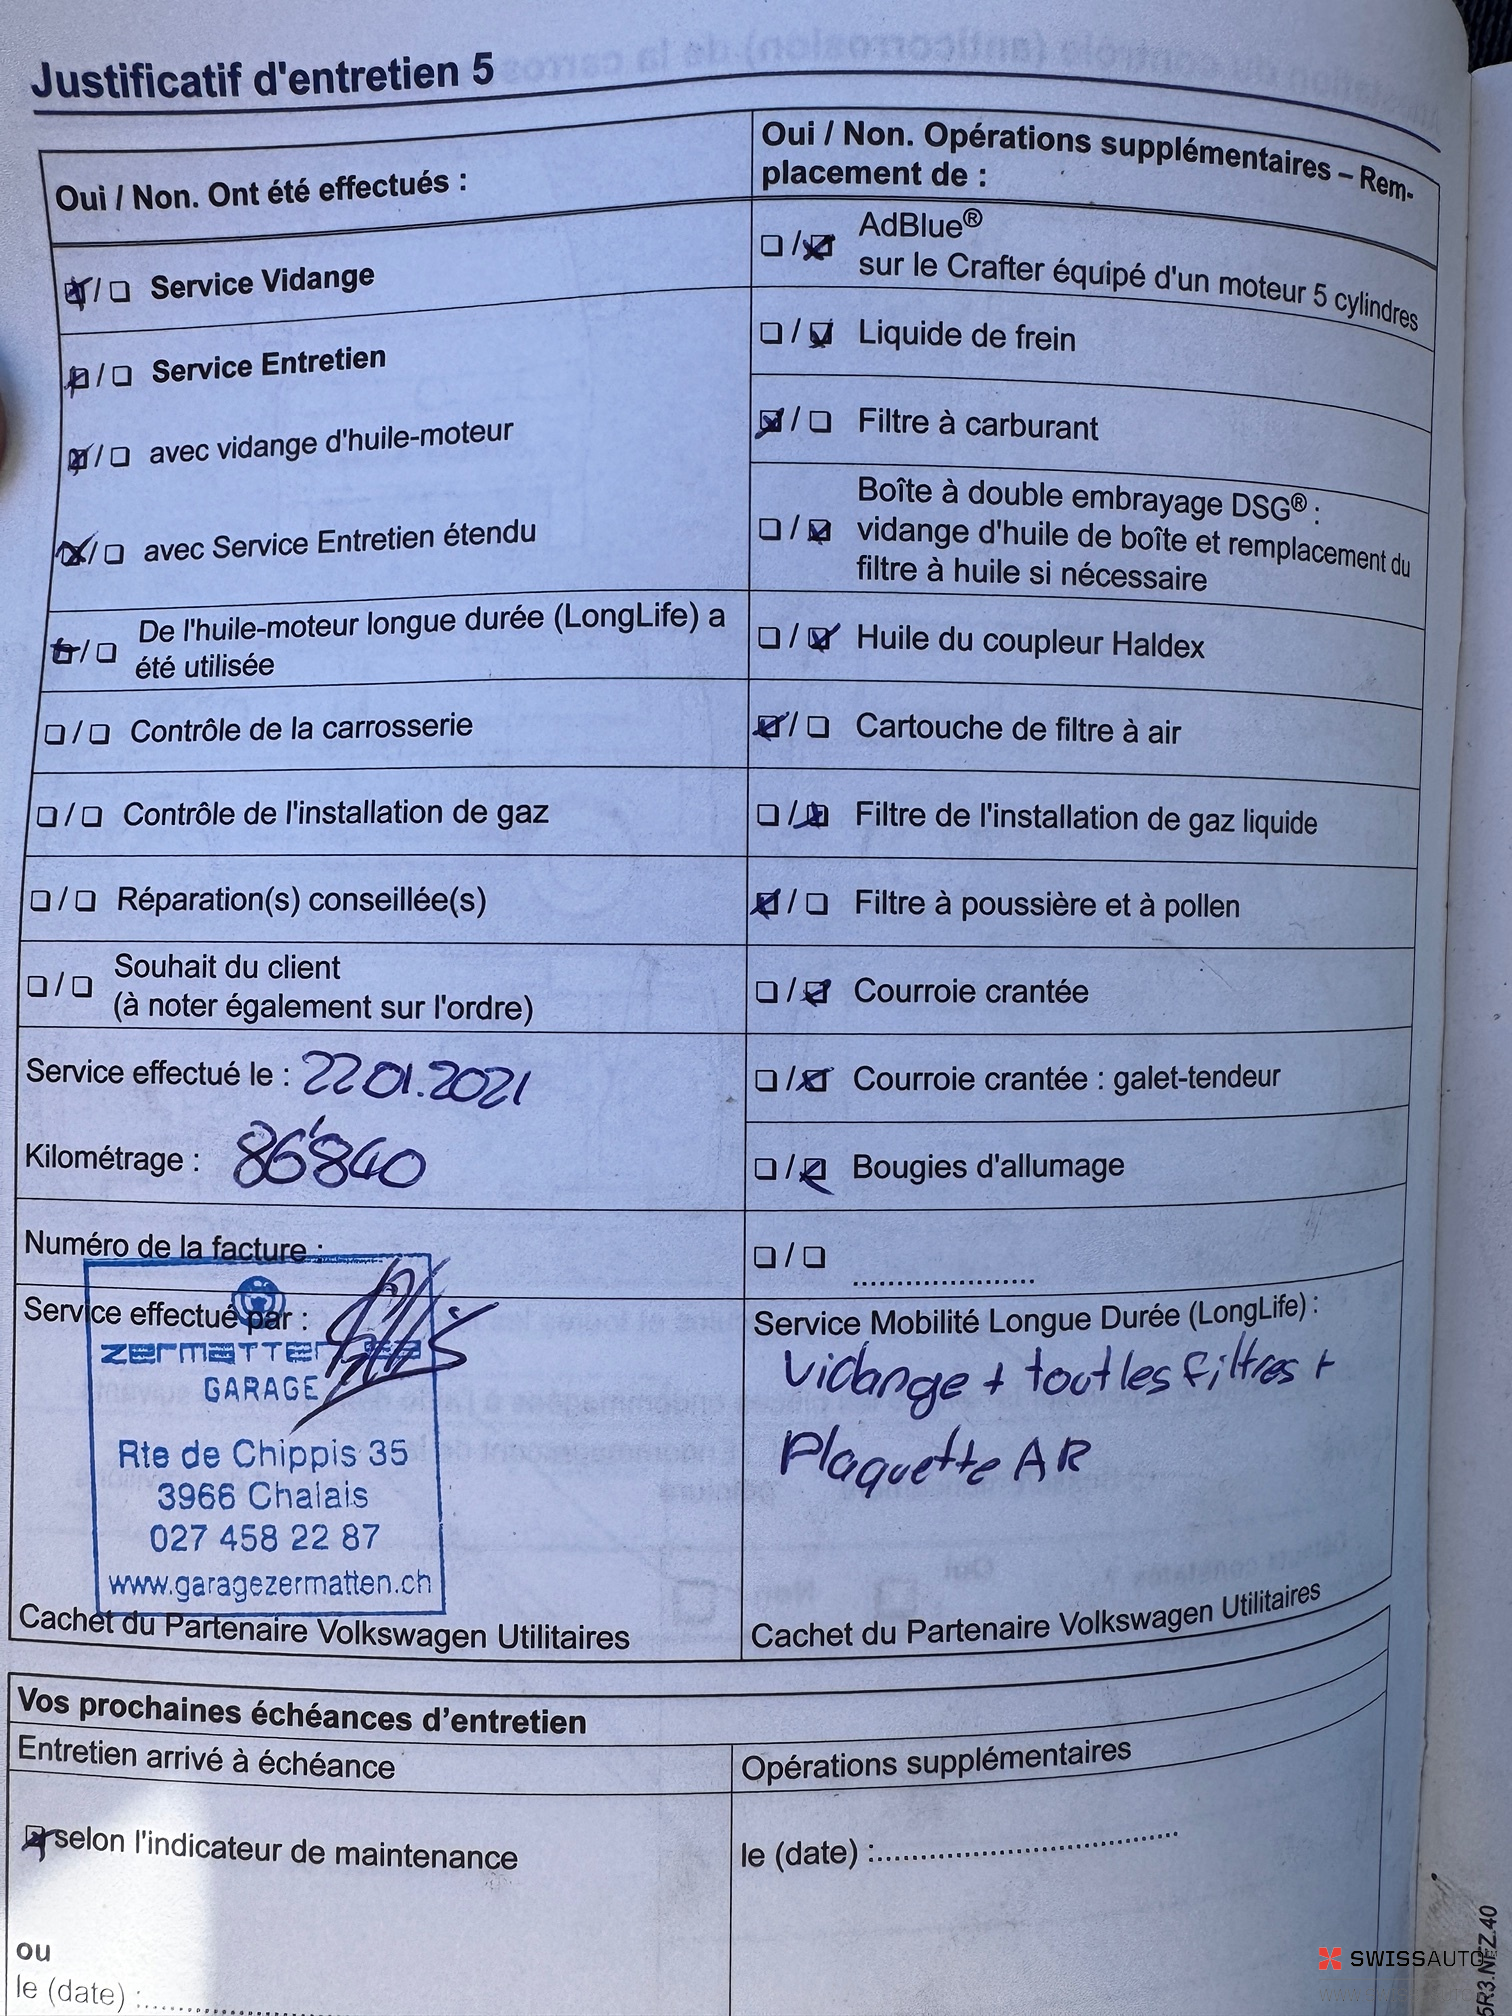 Justificatif d'entretien 5
Oui / Non. Ont été effectués :
Service Vidange
Service Entretien
avec vidange d'huile-moteur
avec Service Entretien étendu
De l'huile-moteur longue durée (LongLife) a
été utilisée
Contrôle de la carrosserie
Contrôle de l'installation de gaz
Réparation(s) conseillée(s)
Souhait du client
(à noter également sur l'ordre)
Service effectué le : 22 01.2021
Kilométrage : 86'840
Numéro de la facture :
Service effectué par :
GARAGE
Rte de Chippis 35
3966 Chalais
027 458 22 87
www.garagezermatten.ch
Cachet du Partenaire Volkswagen Utilitaires
Oui / Non. Opérations supplémentaires – Rem-
placement de :
AdBlue®
sur le Crafter équipé d'un moteur 5 cylindres
Liquide de frein
Filtre à carburant
Boîte à double embrayage DSG® :
vidange d'huile de boîte et remplacement du
filtre à huile si nécessaire
Huile du coupleur Haldex
Cartouche de filtre à air
Filtre de l'installation de gaz liquide
Filtre à poussière et à pollen
Courroie crantée
Courroie crantée : galet-tendeur
Bougies d'allumage
Service Mobilité Longue Durée (LongLife) :
Vidange + tout les filtres +
Plaquette AR
Cachet du Partenaire Volkswagen Utilitaires
Vos prochaines échéances d'entretien
Entretien arrivé à échéance
selon l'indicateur de maintenance
ou
le (date) :
Opérations supplémentaires
le (date) :
SWISSAUTO
5R3.NFZ.40